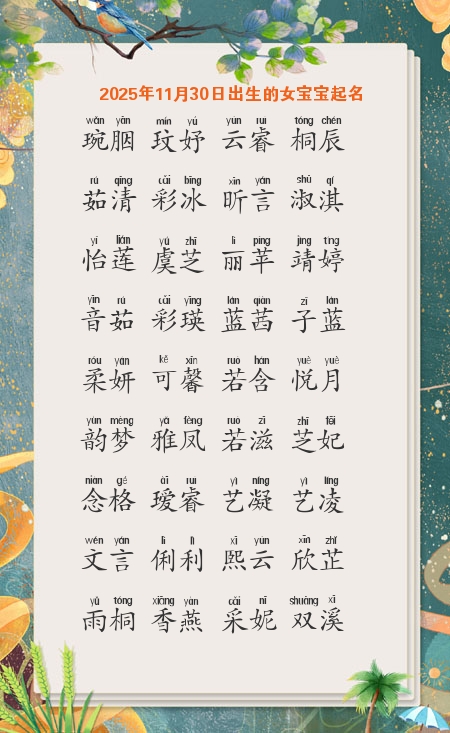 2025年11月30日出生的女宝宝起名
wǎn yān mín yú yún ruì tóng chén
琬胭 玟妤 云睿 桐辰
rú qīng cǎi bīng xīn yán shū qí
茹清 彩冰 昕言 淑淇
yí lián yú zhī lì píng jìng tíng
怡莲 虞芝 丽苹 靖婷
yīn rú cǎi yīng lán qiàn zǐ lán
音茹 彩瑛 蓝茜 子蓝
róu yán kě xīn ruò hán yuè yuè
柔妍 可馨 若含 悦月
yùn mèng yǎ fèng ruò zī zhī fēi
韵梦 雅凤 若滋 芝妃
niàn gé ài ruì yì níng yì líng
念格 瑷睿 艺凝 艺凌
wén yán lì lì xī yún xīn zhǐ
文言 俐利 熙云 欣芷
yǔ tóng xiāng yàn cǎi nī shuāng xī
雨桐 香燕 采妮 双溪